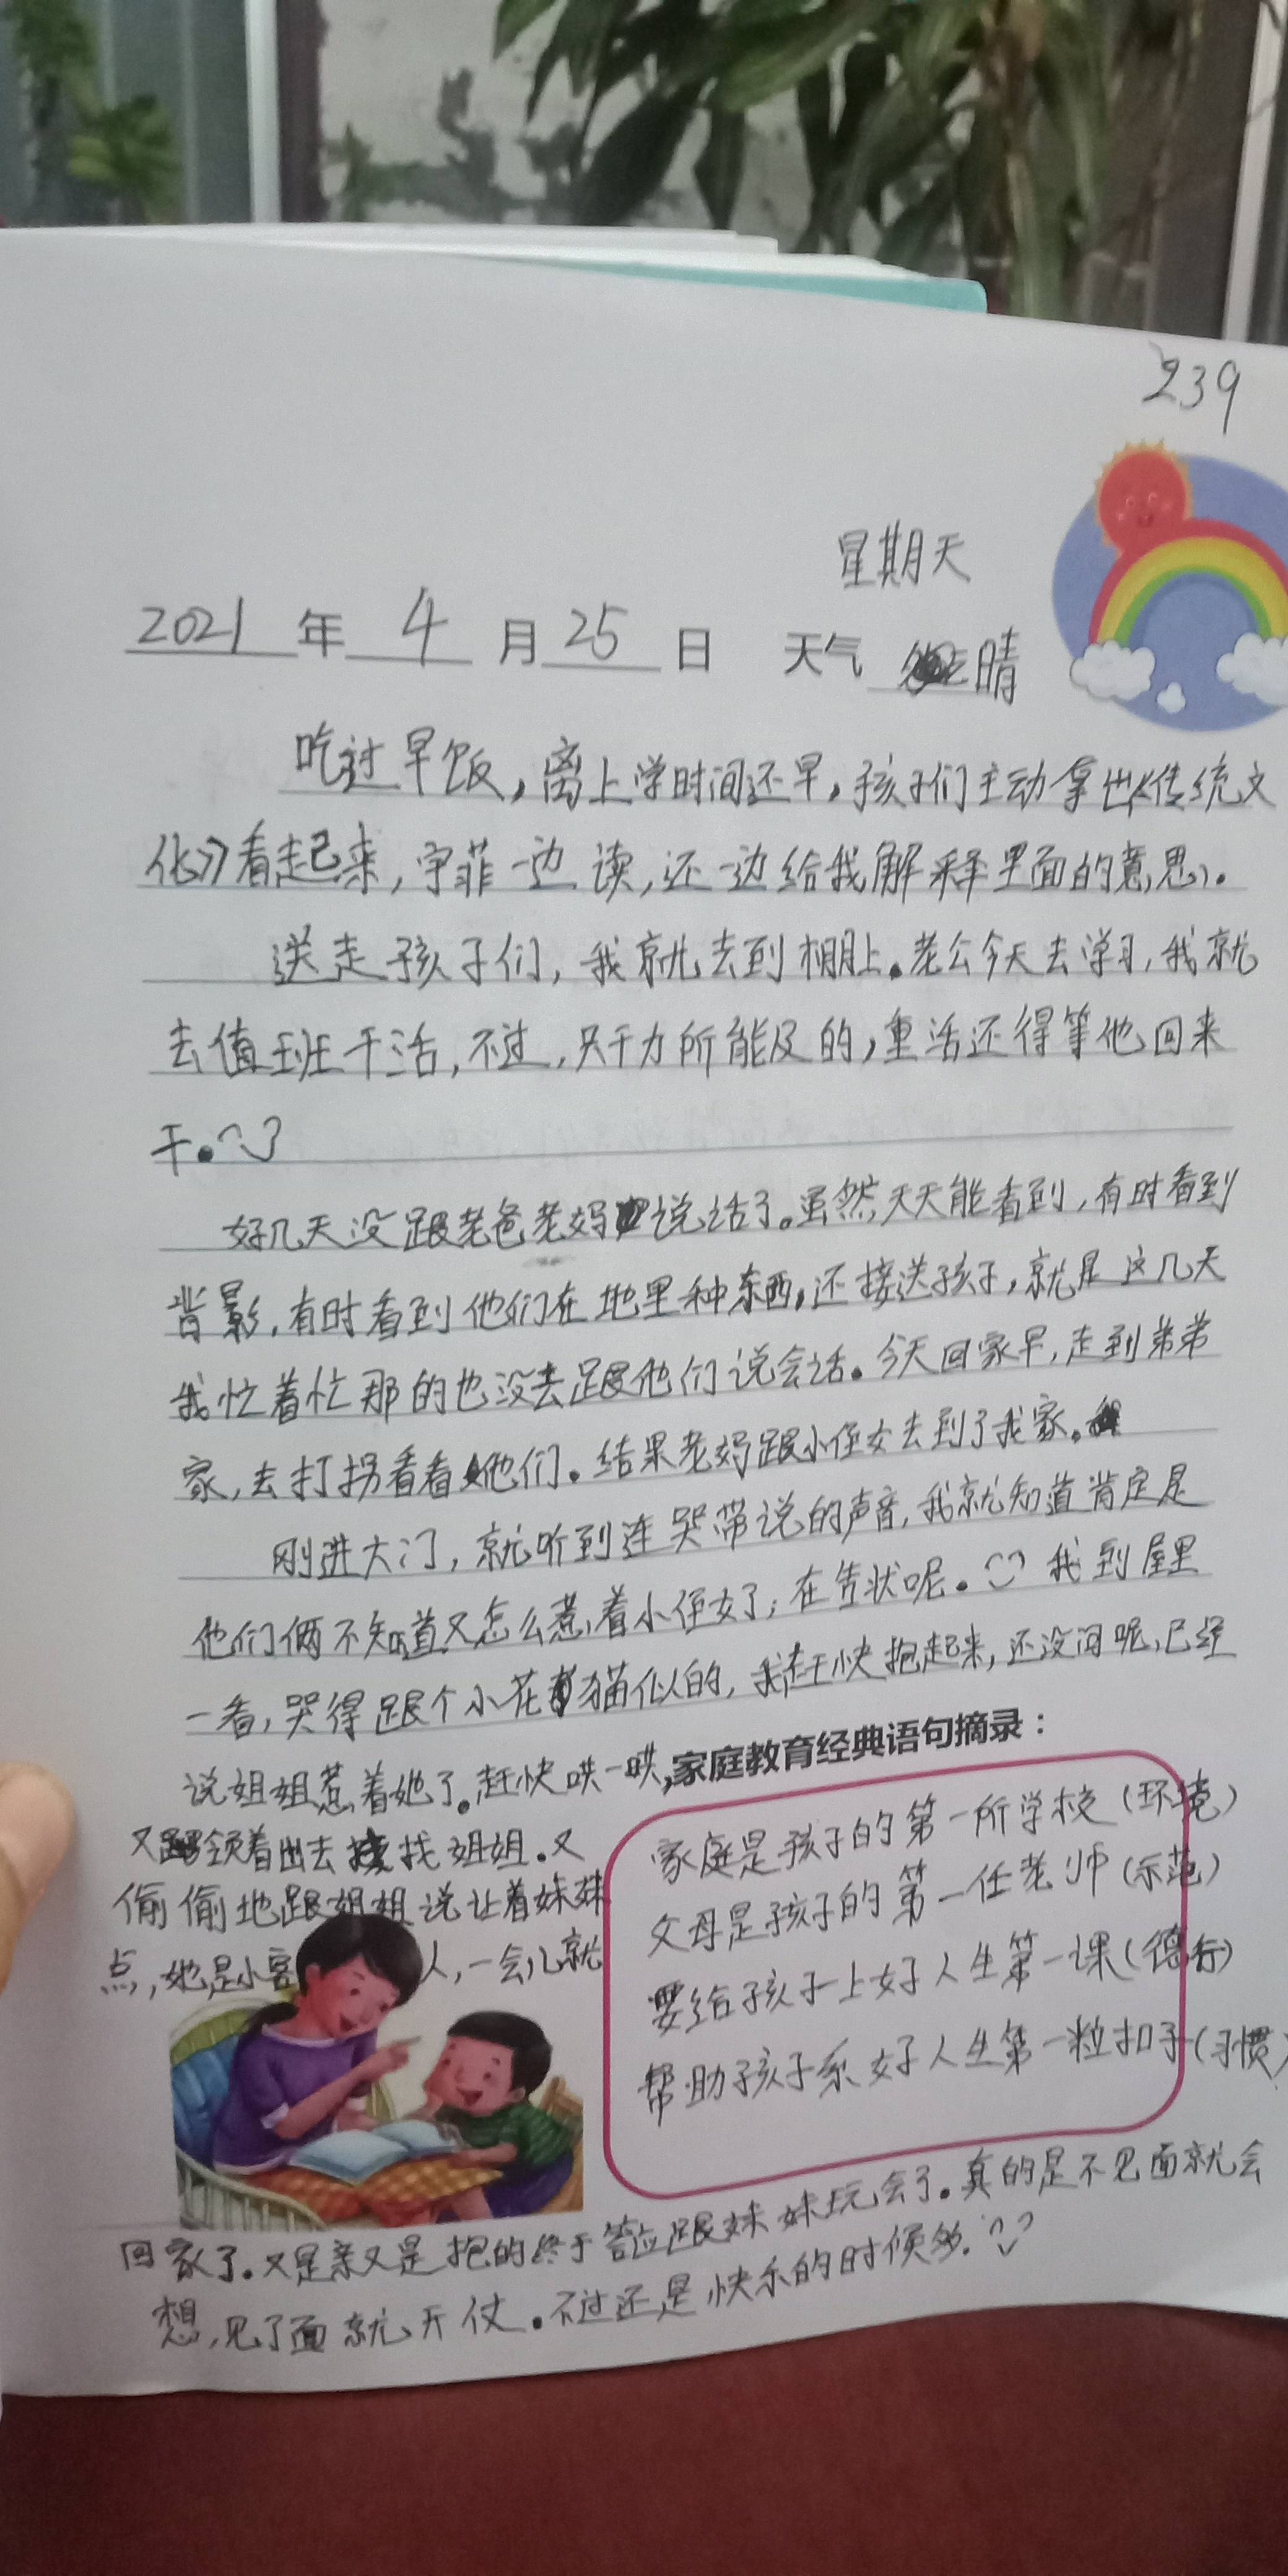 239
星期天
2021年4月25日 天气 晴
吃过早饭,离上学时间还早,孩子们主动拿出《传统文
化》看起来,宇菲一边读,还一边给我解释里面的意思。
送走孩子们,我就去到棚上。老公今天去学习,我就
去值班干活,不过,只干力所能及的,重活还得等他回来
干。
好几天没跟老爸老妈说话了。虽然天天能看到,有时看到
背影,有时看到他们在地里种东西,还接送孩子,就是这几天
我忙着忙那的也没去跟他们说会话。今天回家早,走到弟弟
家,去打拐看看他们。结果老妈跟小侄女去到了我家。
刚进大门,就听到连哭带说的声音,我就知道肯定是
他们俩不知道又怎么惹着小侄女了,在告状呢。我到屋里
一看,哭得跟个小花猫似的,我赶快抱起来,还没问呢,已经
说姐姐惹着她了。赶快哄一哄,
家庭教育经典语句摘录:
又领着出去找姐姐。又
偷偷地跟姐姐说让着妹妹
点,她是小客人,一会儿就
家庭是孩子的第一所学校(环境)
父母是孩子的第一任老师(示范)
要给孩子上好人生第一课(德行)
帮助孩子系好人生第一粒扣子(习惯)
回家了。又是亲又是抱的终于答应跟妹妹玩会了。真的是不见面就会
想,见了面就开仗。不过还是快乐的时候多.